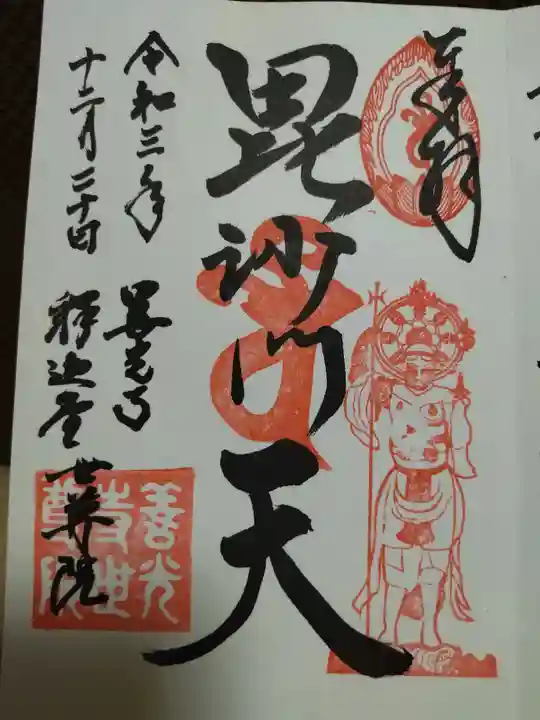 奉拝
毘沙門天
令和三年
十二月二十四日
善光寺
釈迦堂 世尊院
善光
寺世
尊院